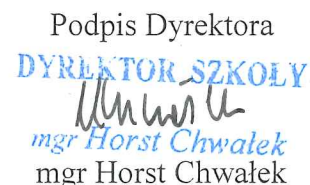 Podpis Dyrektora
DYREKTOR SZKOŁY
mgr Horst Chwałek
mgr Horst Chwałek